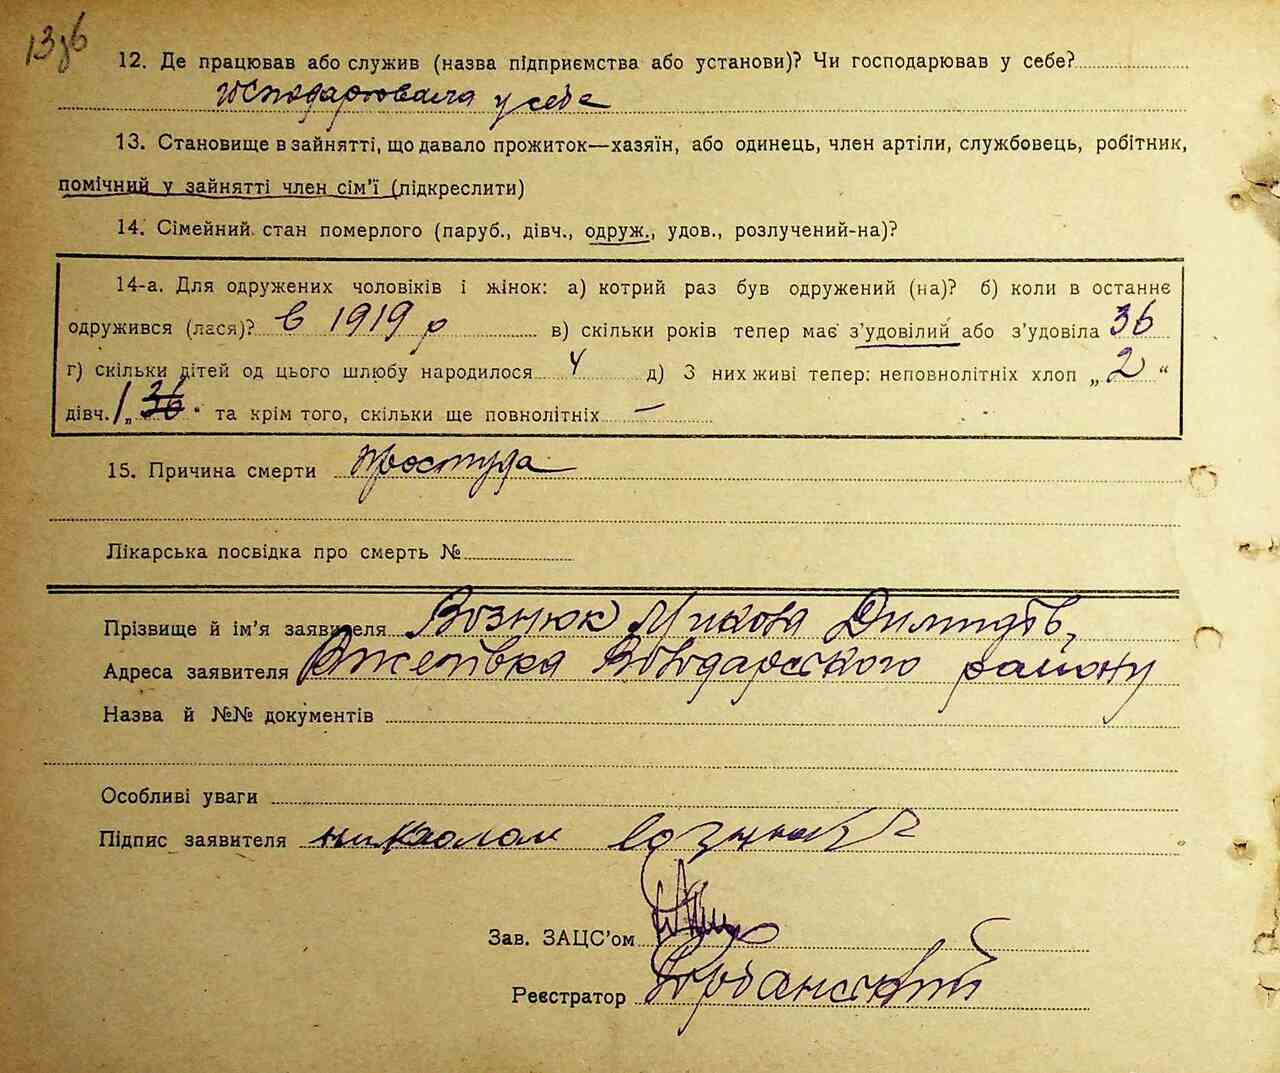 13зб
12. Де працював або служив (назва підприємства або установи)? Чи господарював у себе?
господарювала у себе
13. Становище в зайнятті, що давало прожиток—хазяїн, або одинець, член артіли, службовець, робітник,
помічний у зайнятті член сім'ї (підкреслити)
14. Сімейний стан померлого (паруб., дівч., одруж., удов., розлучений-на)?
14-а. Для одружених чоловіків і жінок: а) котрий раз був одружений (на)? б) коли в останнє
одружився (лася)? в 1919 р в) скільки років тепер має з'удовілий або з'удовіла 36
г) скільки дітей од цього шлюбу народилося 4 д) З них живі тепер: неповнолітніх хлоп „ 2 “
дівч. 1 „ 36 “ та крім того, скільки ще повнолітніх —
15. Причина смерти простуда
Лікарська посвідка про смерть №
Прізвище й ім'я заявителя Вознюк Микола
Адреса заявителя Володарського району
Назва й №№ документів
Особливі уваги
Підпис заявителя
Зав. ЗАЦС'ом
Реєстратор